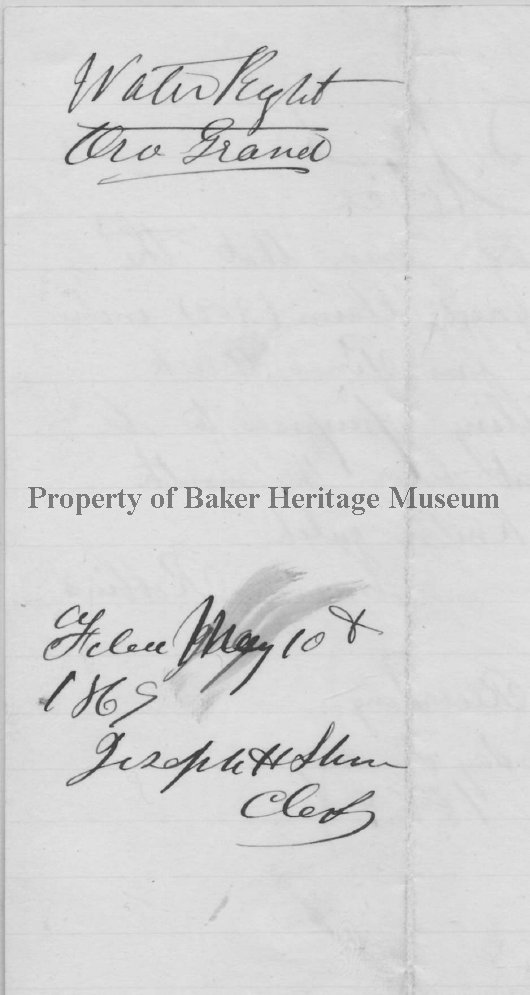 Water Right
Oro Grand
Property of Baker Heritage Museum
Filed May 10th
1869
Joseph H Shinn
Clerk